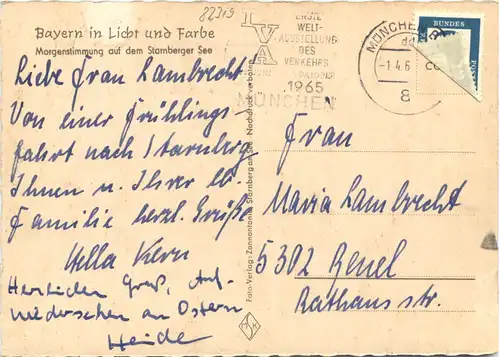 82319
Bayern in Licht und Farbe
Morgenstimmung auf dem Starnberger See
Liebe Frau Lambrecht!
Von einer Frühlings-
fahrt nach Starnberg
Ihnen u. Ihrer lb.
Familie herzl. Grüße
Hella Kern
Herzlichen Gruß, Auf
Wiedersehen an Ostern
Heide
IVA
ERSTE
WELT-
AUSSTELLUNG
DES
VERKEHRS
1965
MÜNCHEN
MÜNCHEN
-1.4.6
8
BUNDES
POST
Foto-Verlag: Zannantonio Starnberg am See. Nachdruck verboten
Frau
Maria Lambrecht
5302 Beuel
Rathausstr.